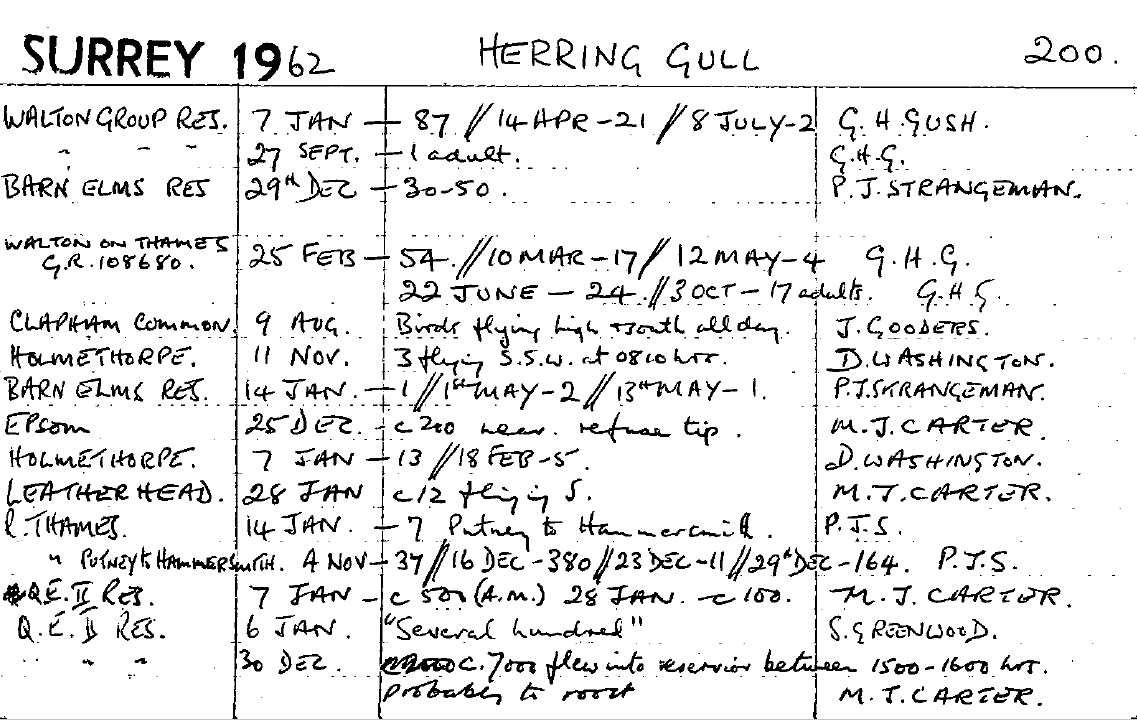 SURREY 1962 HERRING GULL 200.
WALTON GROUP RES. 7 JAN — 87 // 14 APR - 21 // 8 JULY - 2 G. H. GUSH.
" " " 27 SEPT. — 1 adult. G.H.G.
BARN ELMS RES 29th DEC — 30-50. P. J. STRANGEMAN.
WALTON ON THAMES
G.R. 108680. 25 FEB — 54. // 10 MAR - 17 // 12 MAY - 4 G. H. G.
22 JUNE — 24. // 3 OCT - 17 adults. G.H.G.
CLAPHAM COMMON. 9 AUG. Birds flying high South all day. J. GOODERS.
HOLMETHORPE. 11 NOV. 3 flying S.S.W. at 0810 hrs. D. WASHINGTON.
BARN ELMS RES. 14 JAN. — 1 // 1st MAY - 2 // 13th MAY - 1. P.J. STRANGEMAN.
EPSOM 25 DEC. - c 200 near refuse tip. M. J. CARTER.
HOLMETHORPE. 7 JAN — 13 // 18 FEB - 5. D. WASHINGTON.
LEATHERHEAD. 28 JAN c 12 flying S. M. J. CARTER.
R. THAMES. 14 JAN. — 7 Putney to Hammersmith. P. J. S.
" PUTNEY to HAMMERSMITH. 4 NOV — 37 // 16 DEC - 380 // 23 DEC - 11 // 29th DEC - 164. P. J. S.
Q.E. II RES. 7 JAN — c 500 (A.M.) 28 JAN. - c 100. M. J. CARTER.
Q.E. II RES. 6 JAN. "Several hundred" S. GREENWOOD.
" " " 30 DEC. c. 7000 flew into reservior between 1500 - 1600 hrs.
probably to roost M. J. CARTER.